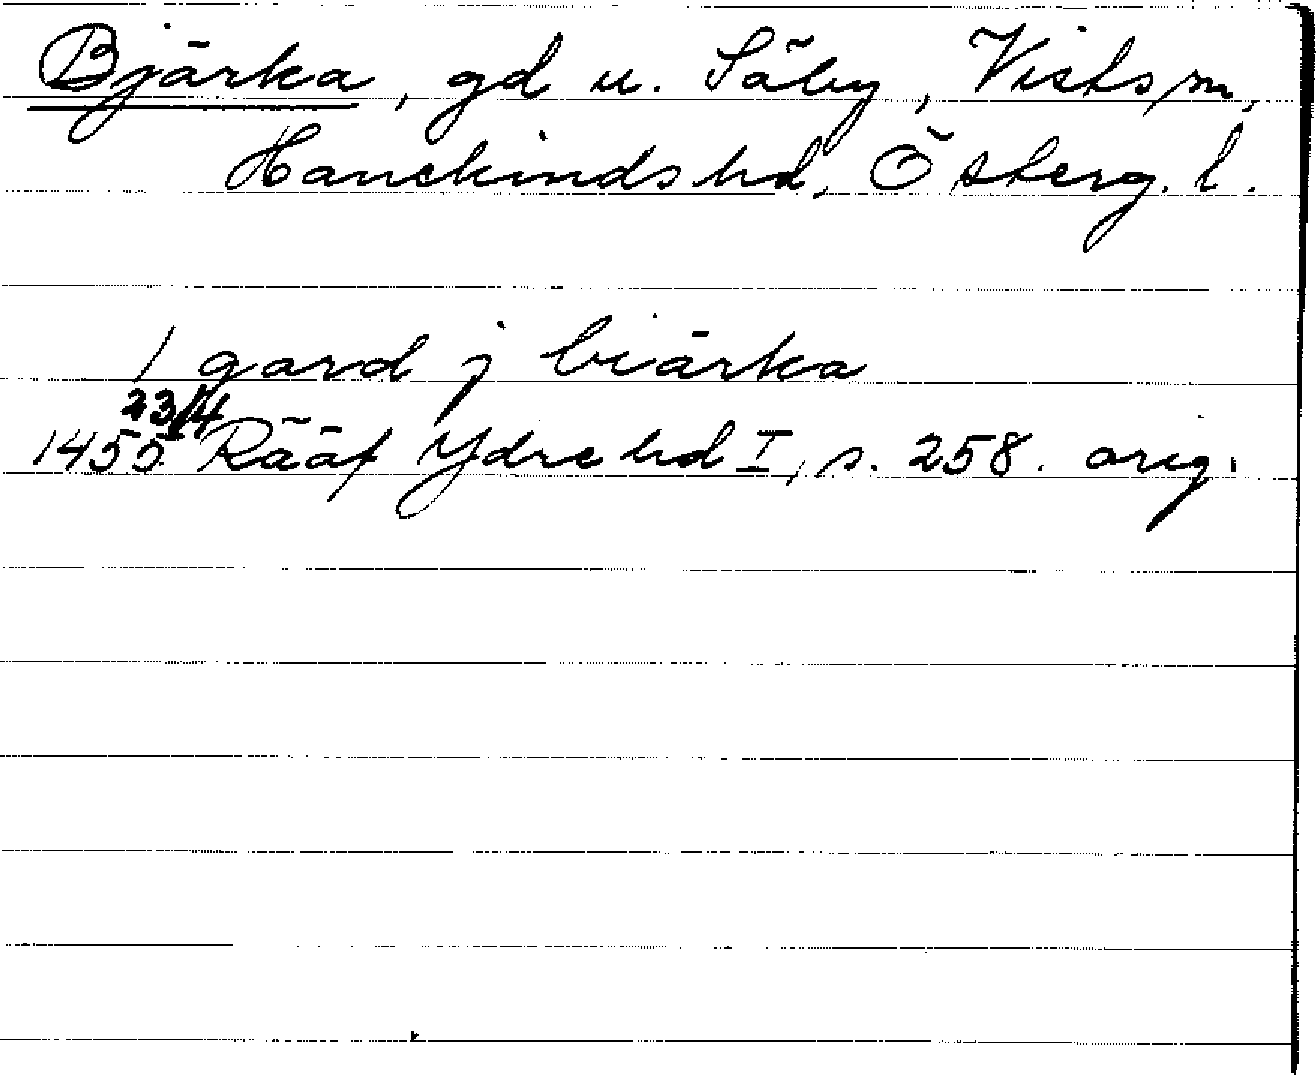 Bjärka, gd u. Säby, Vists sn,
Hanekinds hd, Österg. l.
1 gard j biärka
23/4
1455 Rääf Ydre hd I, s. 258. orig.